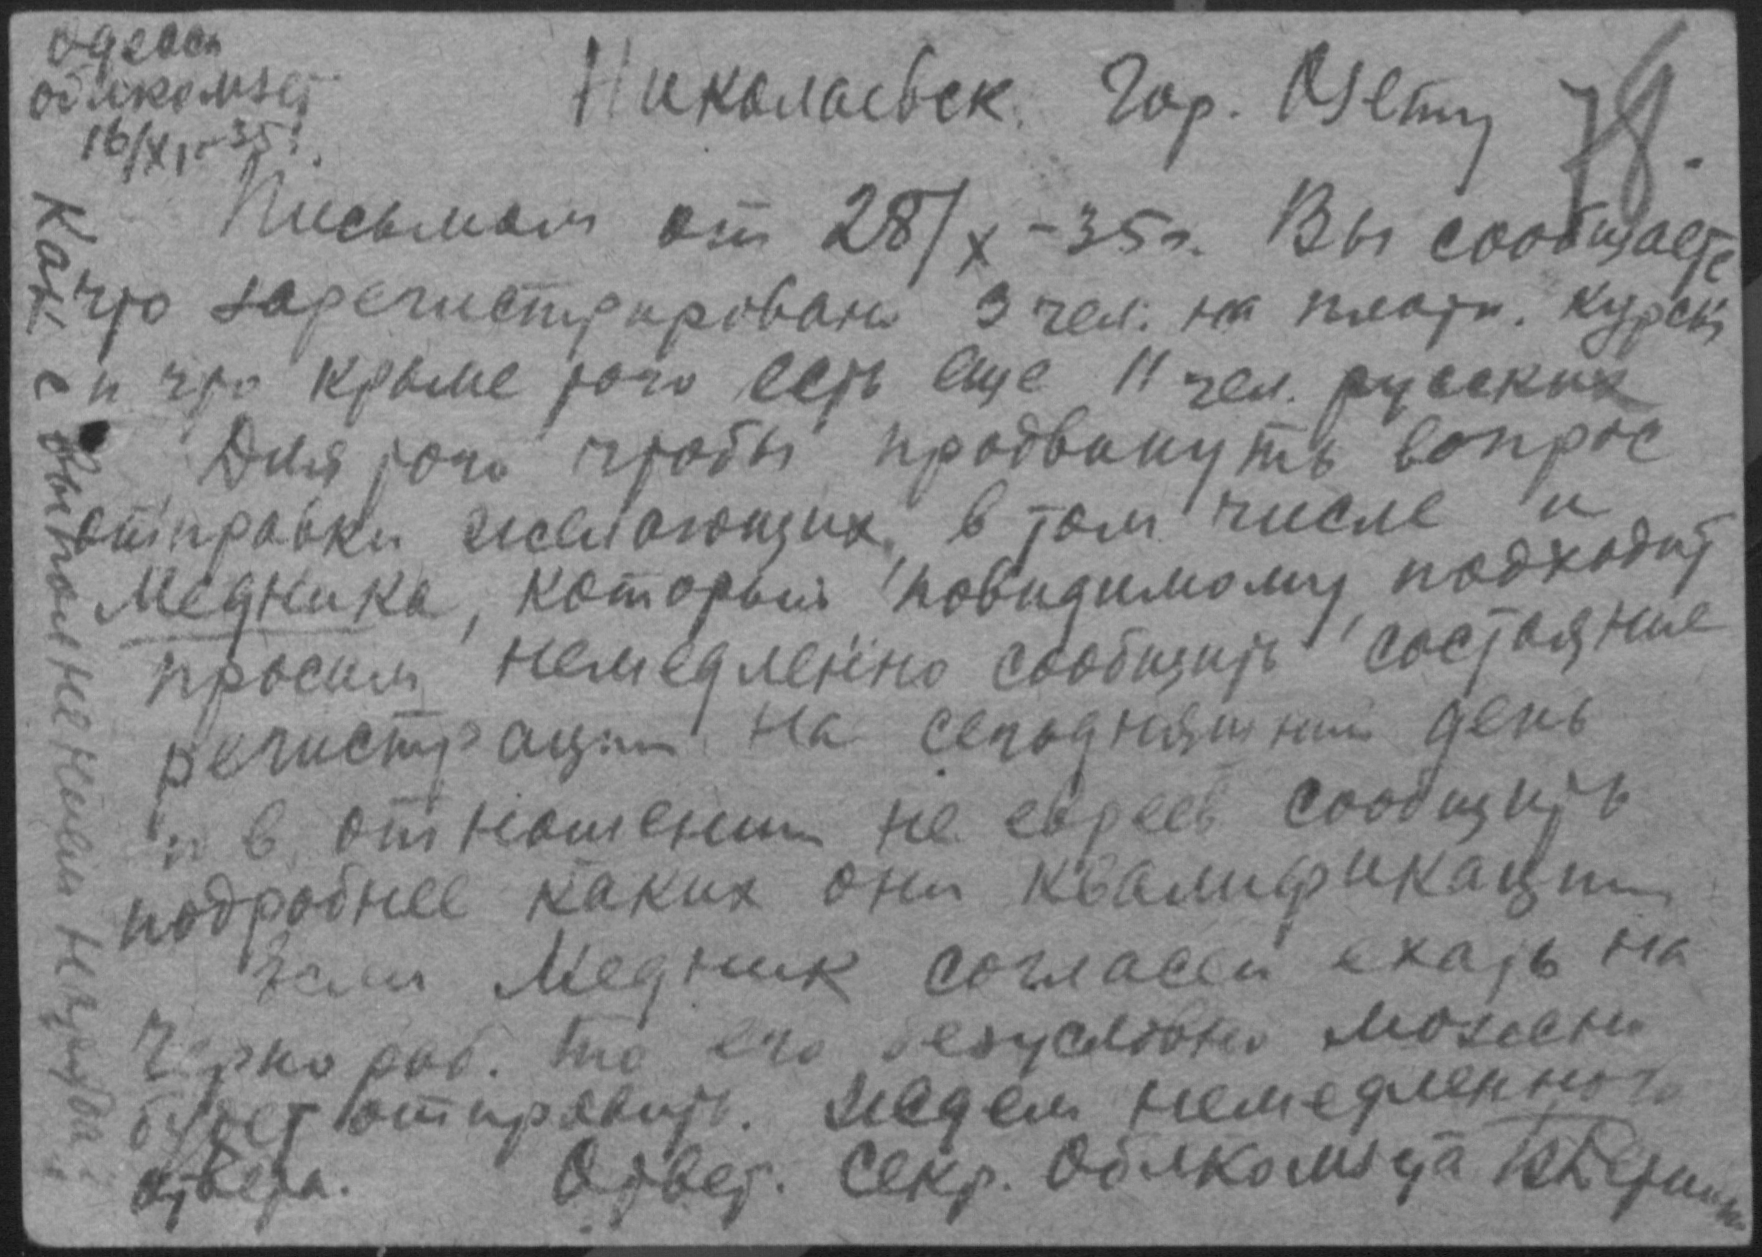 Одесск
облкомзет
16/XI-35г.
Николаевск. Гор. Озету
78.
Письмом от 28/X-35г. Вы сообщаете
что зарегистрирован 3 чел. на плотн. курсы
и что крыме того есть еще 11 чел. русских
Для того чтобы продвинуть вопрос
отправки желающих, в том числе и
Медника, который повидимому подходит
просим немедленно сообщить состояние
регистрации на сегодняшний день
и в отношении не евреев сообщить
подробнее каких они квалификации
Если Медник согласен ехать на
Чернораб. то его безусловно можено
будет отправить. Ждем немедленного
ответа. Ответ. секр. Облкомзета
Как с выполнением наряда?